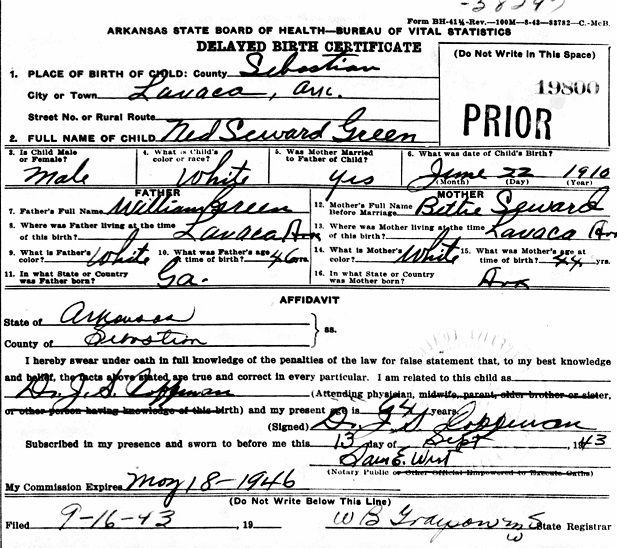 Form BH-41½-Rev.—100M—8-43—33782—C.-McB.
ARKANSAS STATE BOARD OF HEALTH—BUREAU OF VITAL STATISTICS
DELAYED BIRTH CERTIFICATE
(Do Not Write In This Space)
19800
PRIOR
1. PLACE OF BIRTH OF CHILD: County Sebastian
City or Town Lavaca, Ark.
Street No. or Rural Route
2. FULL NAME OF CHILD Ned Seward Green
3. Is Child Male or Female? Male
4. What is Child's color or race? White
5. Was Mother Married to Father of Child? Yes
6. What was date of Child's Birth? June 22 1910
(Month) (Day) (Year)
FATHER
MOTHER
7. Father's Full Name William Green
12. Mother's Full Name Before Marriage Bettie Seward
8. Where was Father living at the time of this birth? Lavaca Ark
13. Where was Mother living at the time of this birth? Lavaca Ark
9. What is Father's color? White 10. What was Father's age at time of birth? 46 yrs.
14. What is Mother's color? White 15. What was Mother's age at time of birth? 44 yrs.
11. In what State or Country was Father born? Ga.
16. In what State or Country was Mother born? Ark
AFFIDAVIT
State of Arkansas
County of Sebastian
} ss.
I hereby swear under oath in full knowledge of the penalties of the law for false statement that, to my best knowledge
and belief, the facts above stated, are true and correct in every particular. I am related to this child as
Dr. J. S. Coffman (Attending physician, midwife, parent, elder brother or sister,
or other person having knowledge of this birth) and my present age is years
(Signed) Dr. J. S. Coffman
Subscribed in my presence and sworn to before me this 13 day of Sept, 1943
Sam E. West
(Notary Public or Other Official Empowered to Execute Oaths)
My Commission Expires May 18-1946
(Do Not Write Below This Line)
Filed 9-16-43, 19 W B Grayson State Registrar